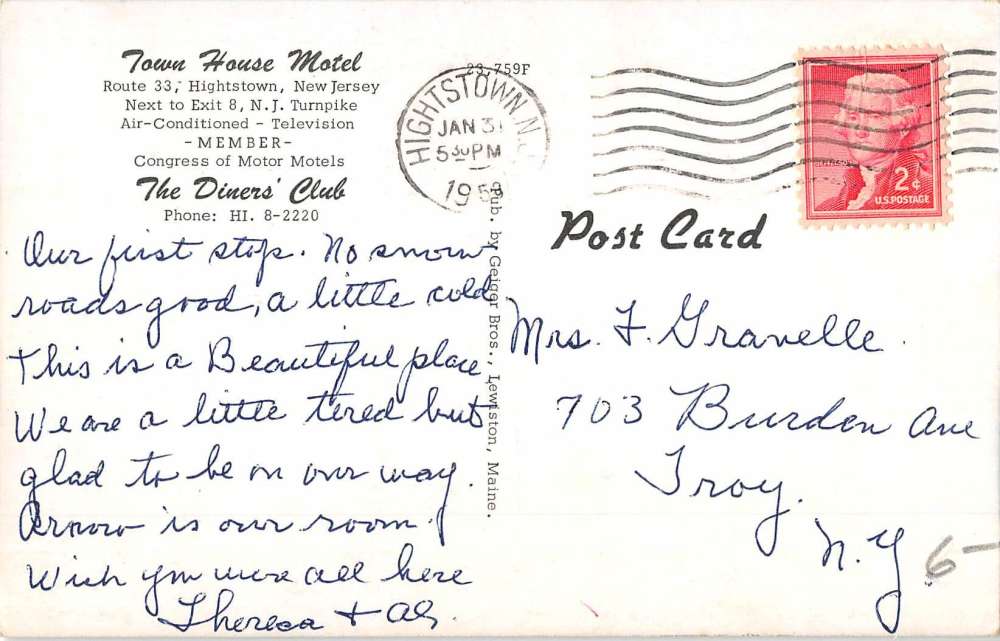 Town House Motel
Route 33, Hightstown, New Jersey
Next to Exit 8, N.J. Turnpike
Air-Conditioned - Television
-MEMBER-
Congress of Motor Motels
The Diners' Club
Phone: HI. 8-2220
23,759F
HIGHTSTOWN N.J.
JAN 31
5 30 PM
195
2¢
U.S. POSTAGE
Post Card
Pub. by Geiger Bros., Lewiston, Maine.
Our first stop. No snow
roads good, a little cold
This is a Beautiful place
We are a little tired but
glad to be on our way.
is our room.
Wish you were all here
Theresa + Al.
Mrs. F. Gravelle.
703 Burden Ave
Troy.
N.Y
6-